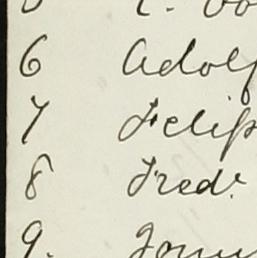 6 Adolf
7 Felip
8 Fred.
9.